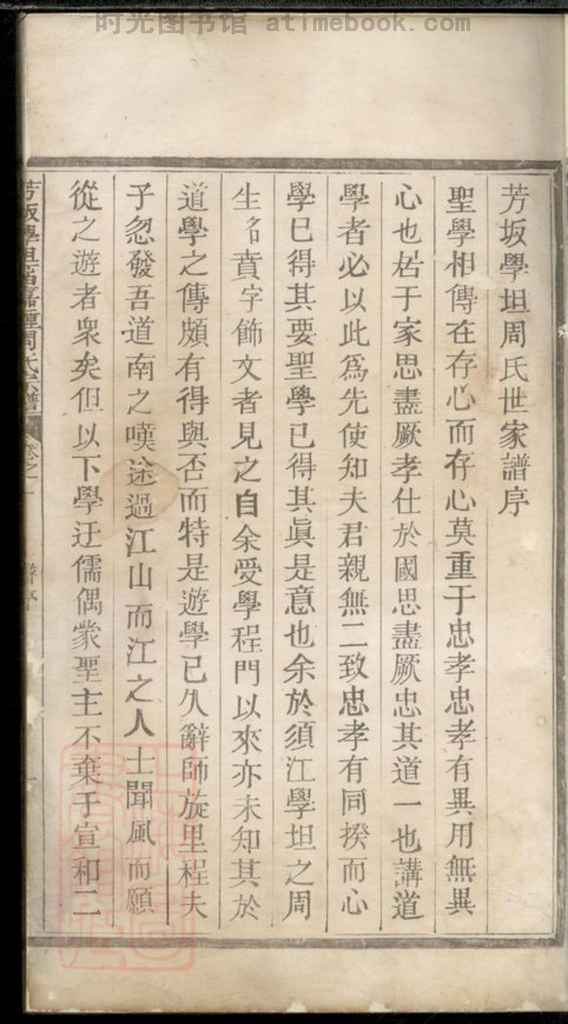 时光图书馆 atimebook.com
芳坂學坦周氏世家譜序
聖學相傳在存心而存心莫重于忠孝忠孝有異用無異
心也居于家思盡厥孝仕於國思盡厥忠其道一也講道
學者必以此爲先使知夫君親無二致忠孝有同揆而心
學已得其要聖學已得其眞是意也余於須江學坦之周
生名賁字飾文者見之自余受學程門以來亦未知其於
道學之傳頗有得與否而特是遊學已久辭師旋里程夫
子忽發吾道南之嘆途過江山而江之人士聞風而願
從之遊者衆矣但以下學迂儒偶蒙聖主不棄于宣和二